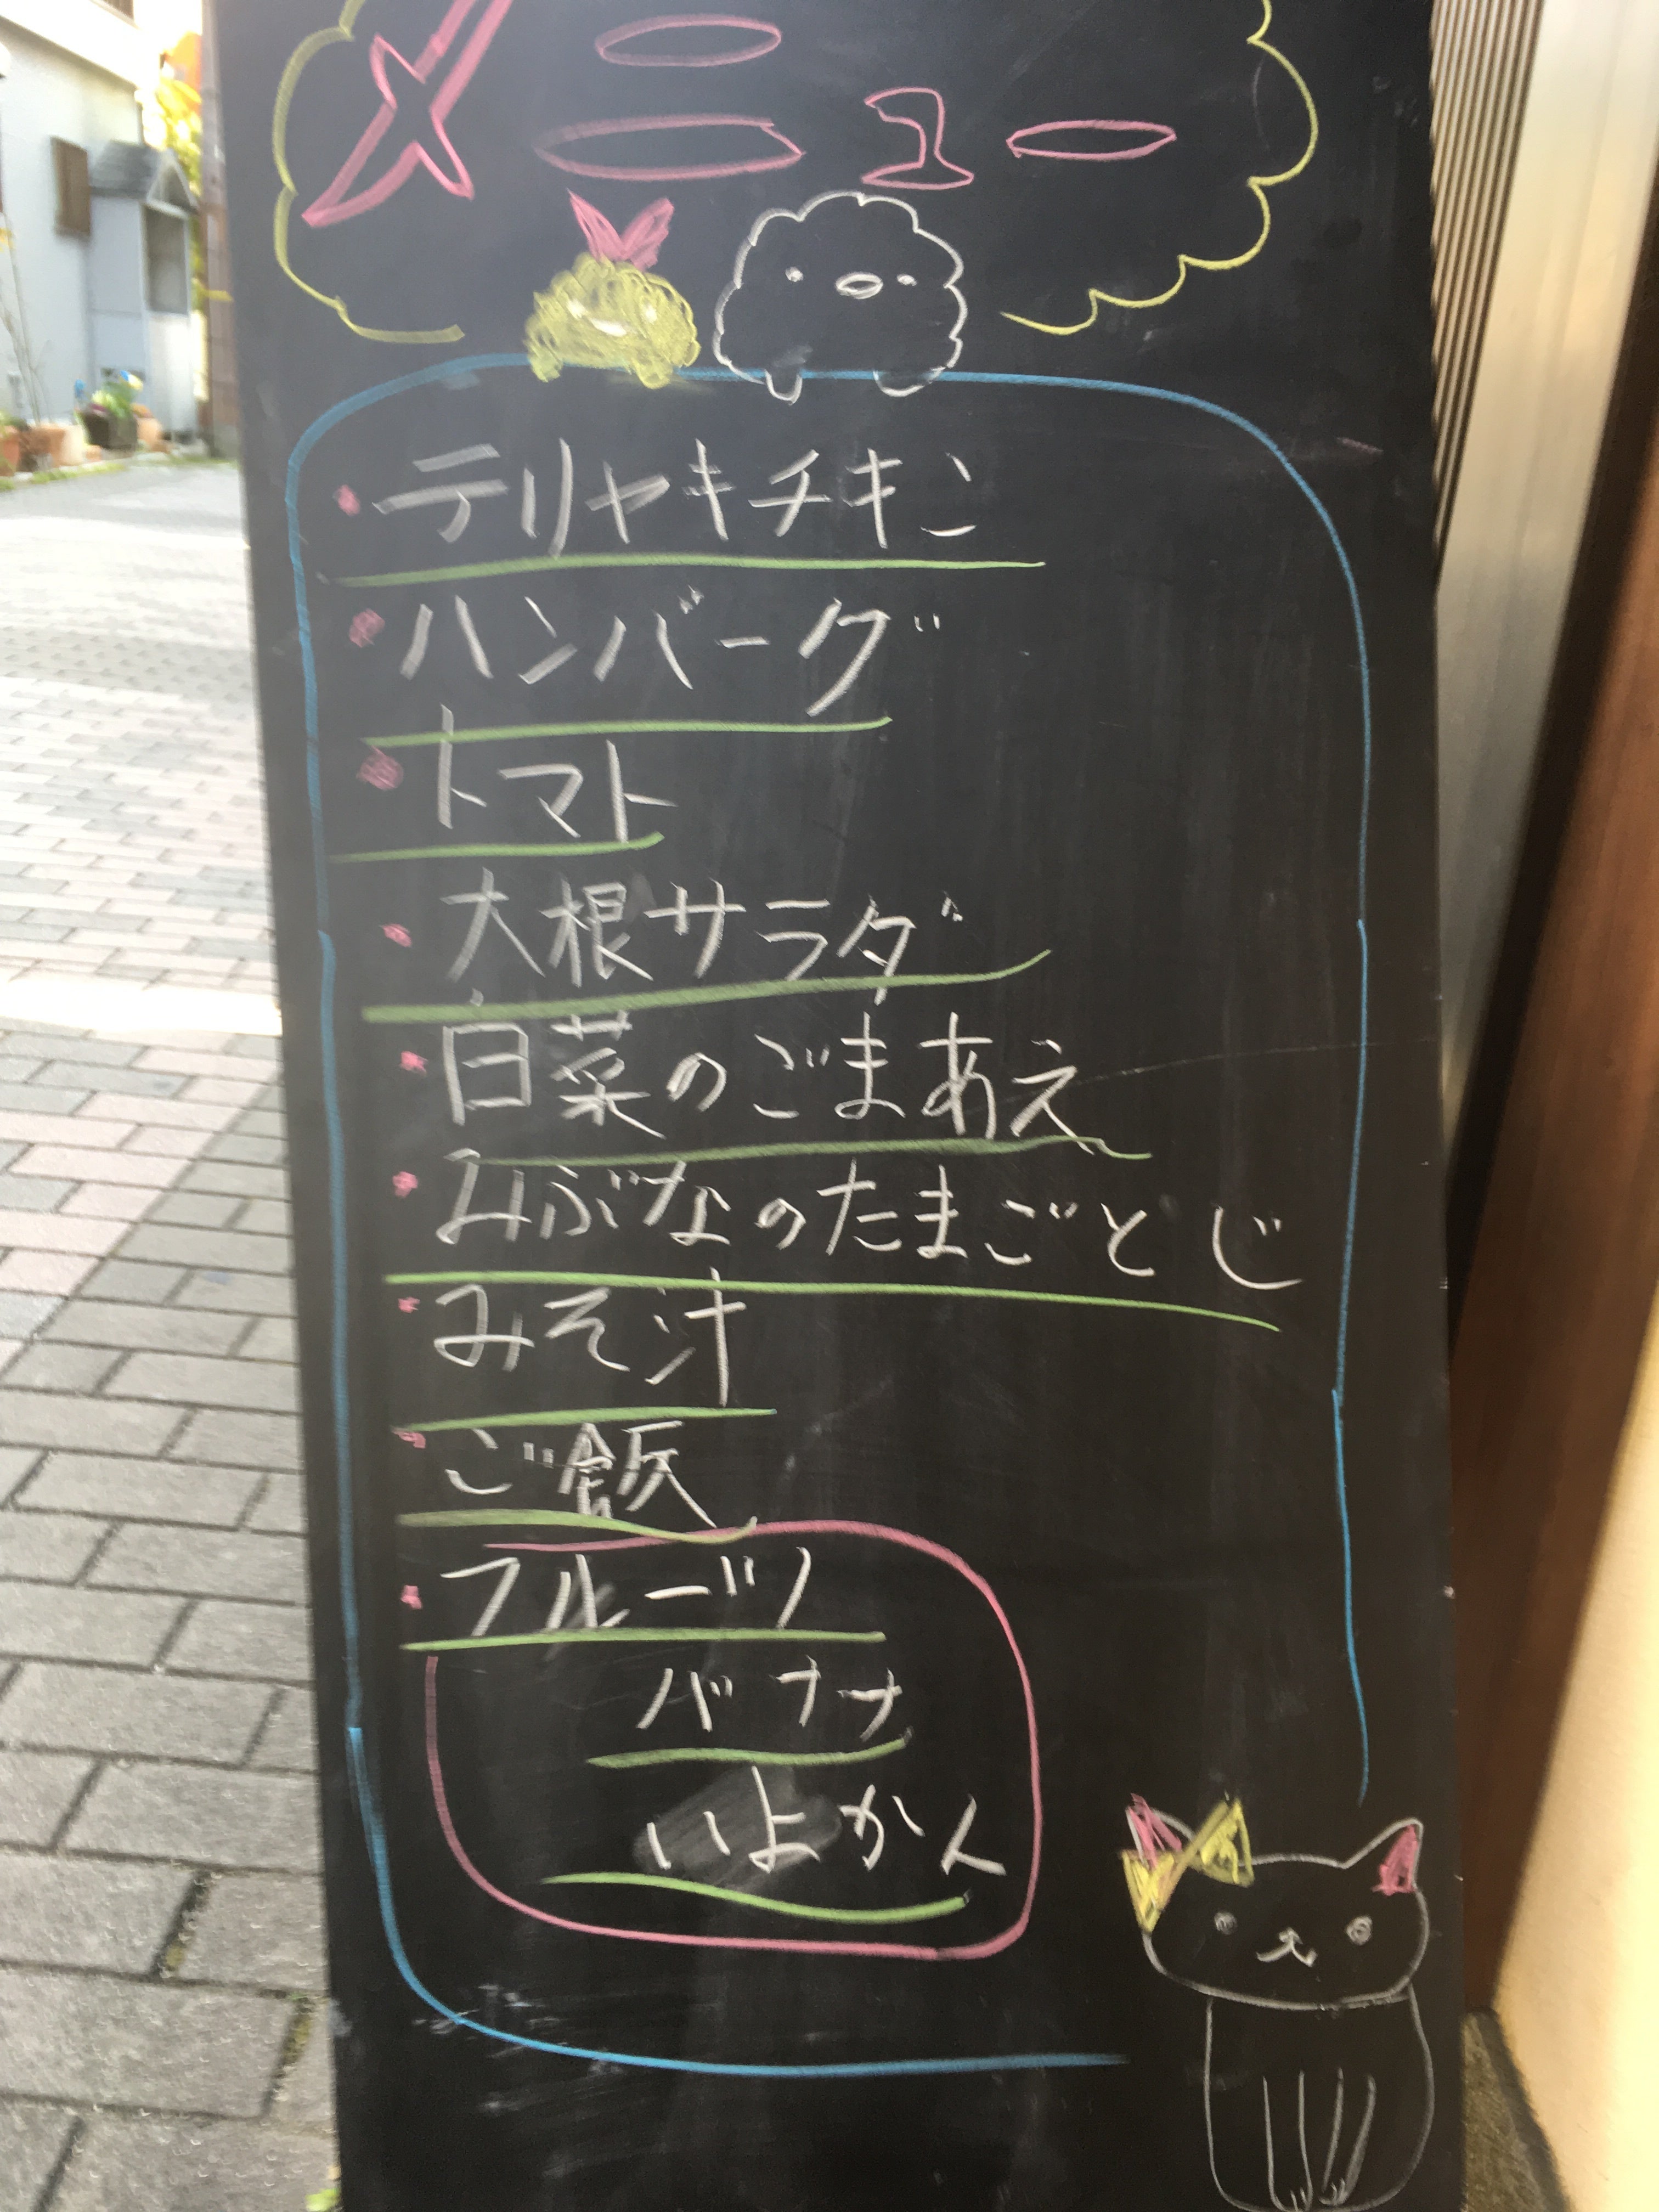 メニュー
テリヤキチキン
ハンバーグ
トマト
大根サラダ
白菜のごまあえ
みぶなのたまごとじ
みそ汁
ご飯
フルーツ
バナナ
いよかん